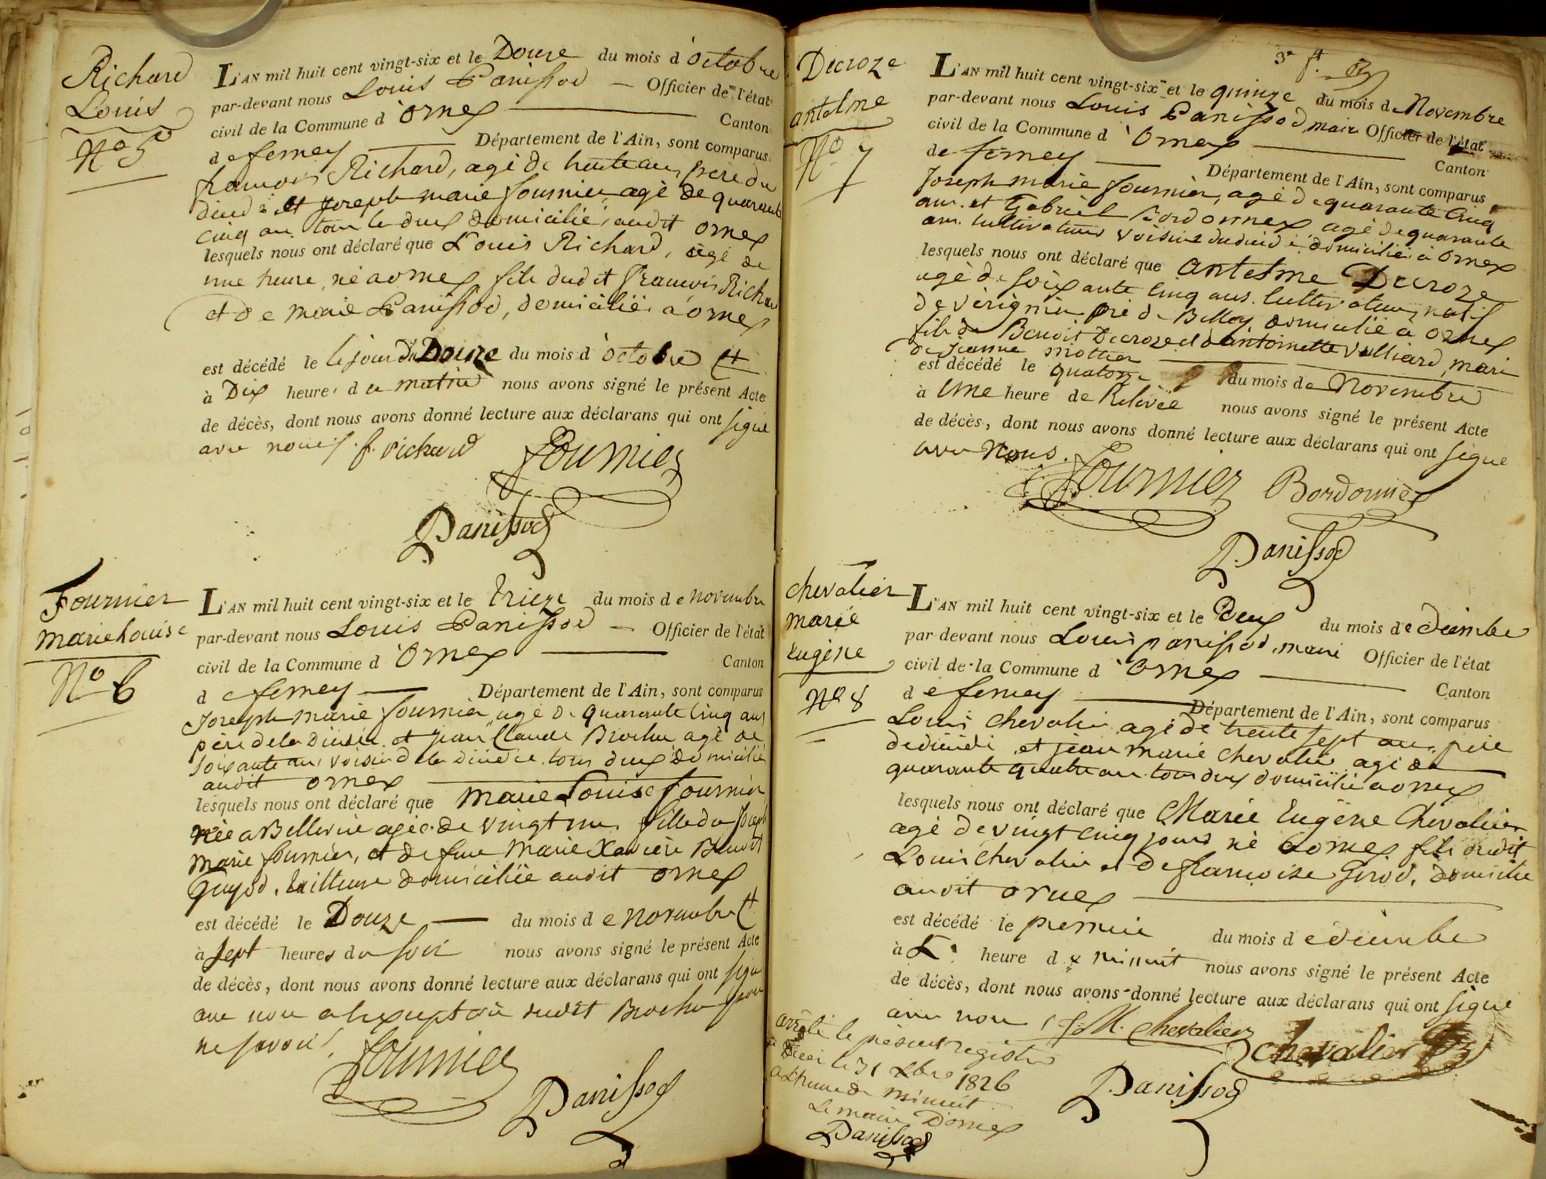 Richard
Louis
N° 5
L'AN mil huit cent vingt-six et le Douze du mois d'octobre
par-devant nous Louis Panissod — Officier de l'état
civil de la Commune d'Ornex — Canton
de ferney — Département de l'Ain, sont comparus
françois Richard, agé de trente ans, père du
et Joseph marie fournier agé de quarante
cinq ans tous les deux domicilié audit ornex
lesquels nous ont déclaré que Louis Richard, agé de
une heure, né a ornex fils dudit françois Richard
et de marie Panissod, domicilié a ornex
est décédé le le jour Douze du mois d'octobre
à Dix heures du matin nous avons signé le présent Acte
de décès, dont nous avons donné lecture aux déclarans qui ont signé
avec nous f. richard Fournier
Panissod
Fournier
marie Louise
N° 6
L'AN mil huit cent vingt-six et le trieze du mois de novembre
par-devant nous Louis Panissod — Officier de l'état
civil de la Commune d'Ornex — Canton
de ferney — Département de l'Ain, sont comparus
Joseph marie fournier, agé de quarante cinq ans
père de la et jean Claude Brochu agé de
soixante ans voisin de la tous deux domicilié
audit ornex
lesquels nous ont déclaré que marie Louise fournier
née a agée de vingt un fille du Joseph
marie fournier, et de feue marie Xaviere
domiciliée audit ornex
est décédé le Douze — du mois de novembre
à sept heures du soir nous avons signé le présent Acte
de décès, dont nous avons donné lecture aux déclarans qui ont signé
avec nous a dudit Brochu pour
ne savoir
Fournier
Panissod
3e ft.
Decroze
antelme
N° 7
L'AN mil huit cent vingt-six et le quinze du mois de Novembre
par-devant nous Louis Panissod, maire Officier de l'état
civil de la Commune d'Ornex — Canton
de ferney — Département de l'Ain, sont comparus
Joseph marie fournier, agé de quarante cinq
ans. et Gabriel Bordonnex, agé de quarante
ans cultivateurs voisins domicilié à ornex
lesquels nous ont déclaré que antelme Decroze
agé de soixante cinq ans. cultivateur, natif
de près de Belley domicilié a ornex
fils de Benoit Decroze et d'antoinette Vulliard, mari
de Jeanne mottier
est décédé le quatorze du mois de Novembre
à Une heure de Relevée nous avons signé le présent Acte
de décès, dont nous avons donné lecture aux déclarans qui ont signé
avec Nous. Fournier Bordonnex
Panissod
Chevalier
marie
Eugène
N° 8
L'AN mil huit cent vingt-six et le Deux du mois de décembre
par-devant nous Louis panissod, maire Officier de l'état
civil de la Commune d'Ornex — Canton
de ferney — Département de l'Ain, sont comparus
Louis Chevalier agé de trente sept ans, père
et jean marie Chevalier agé de
quarante quatre ans tous deux domicilié a ornex
lesquels nous ont déclaré que Marie Eugène Chevalier
agé de vingt cinq jours né a ornex fils dudit
Louis chevalier et de francoise Girod, domicilié
audit ornex
est décédé le premier du mois de décembre
à heure de minuit nous avons signé le présent Acte
de décès, dont nous avons donné lecture aux déclarans qui ont signé
avec nous J. M. Chevalier chevalier
Panissod
arrêté le présent registre
le 31 Xbre 1826
a L'heure de minuit
Le maire D'ornex
Panissod